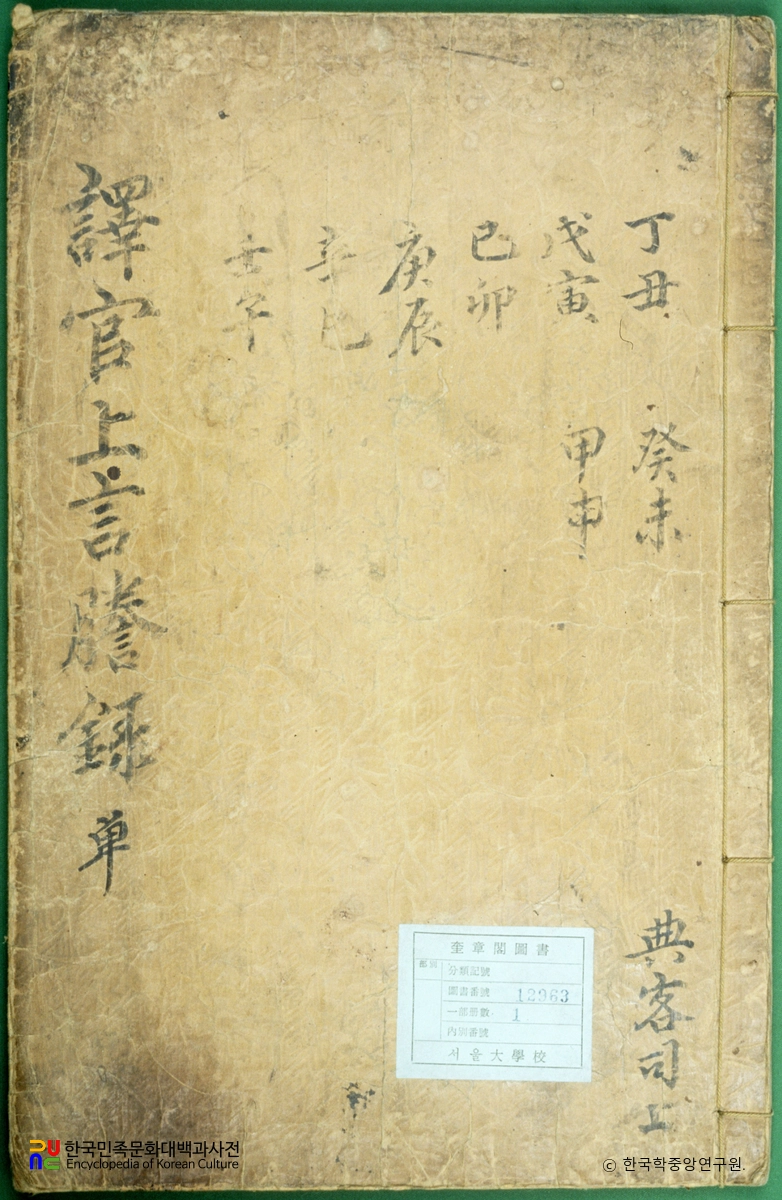 丁丑
戊寅
己卯
庚辰
辛巳
壬午
癸未
甲申
譯官上言謄録 单
典客司上
奎章閣圖書
部別
分類記號
圖書番號 12963
一部冊數 1
內別番號
서울大學校
한국민족문화대백과사전
Encyclopedia of Korean Culture
ⓒ 한국학중앙연구원.